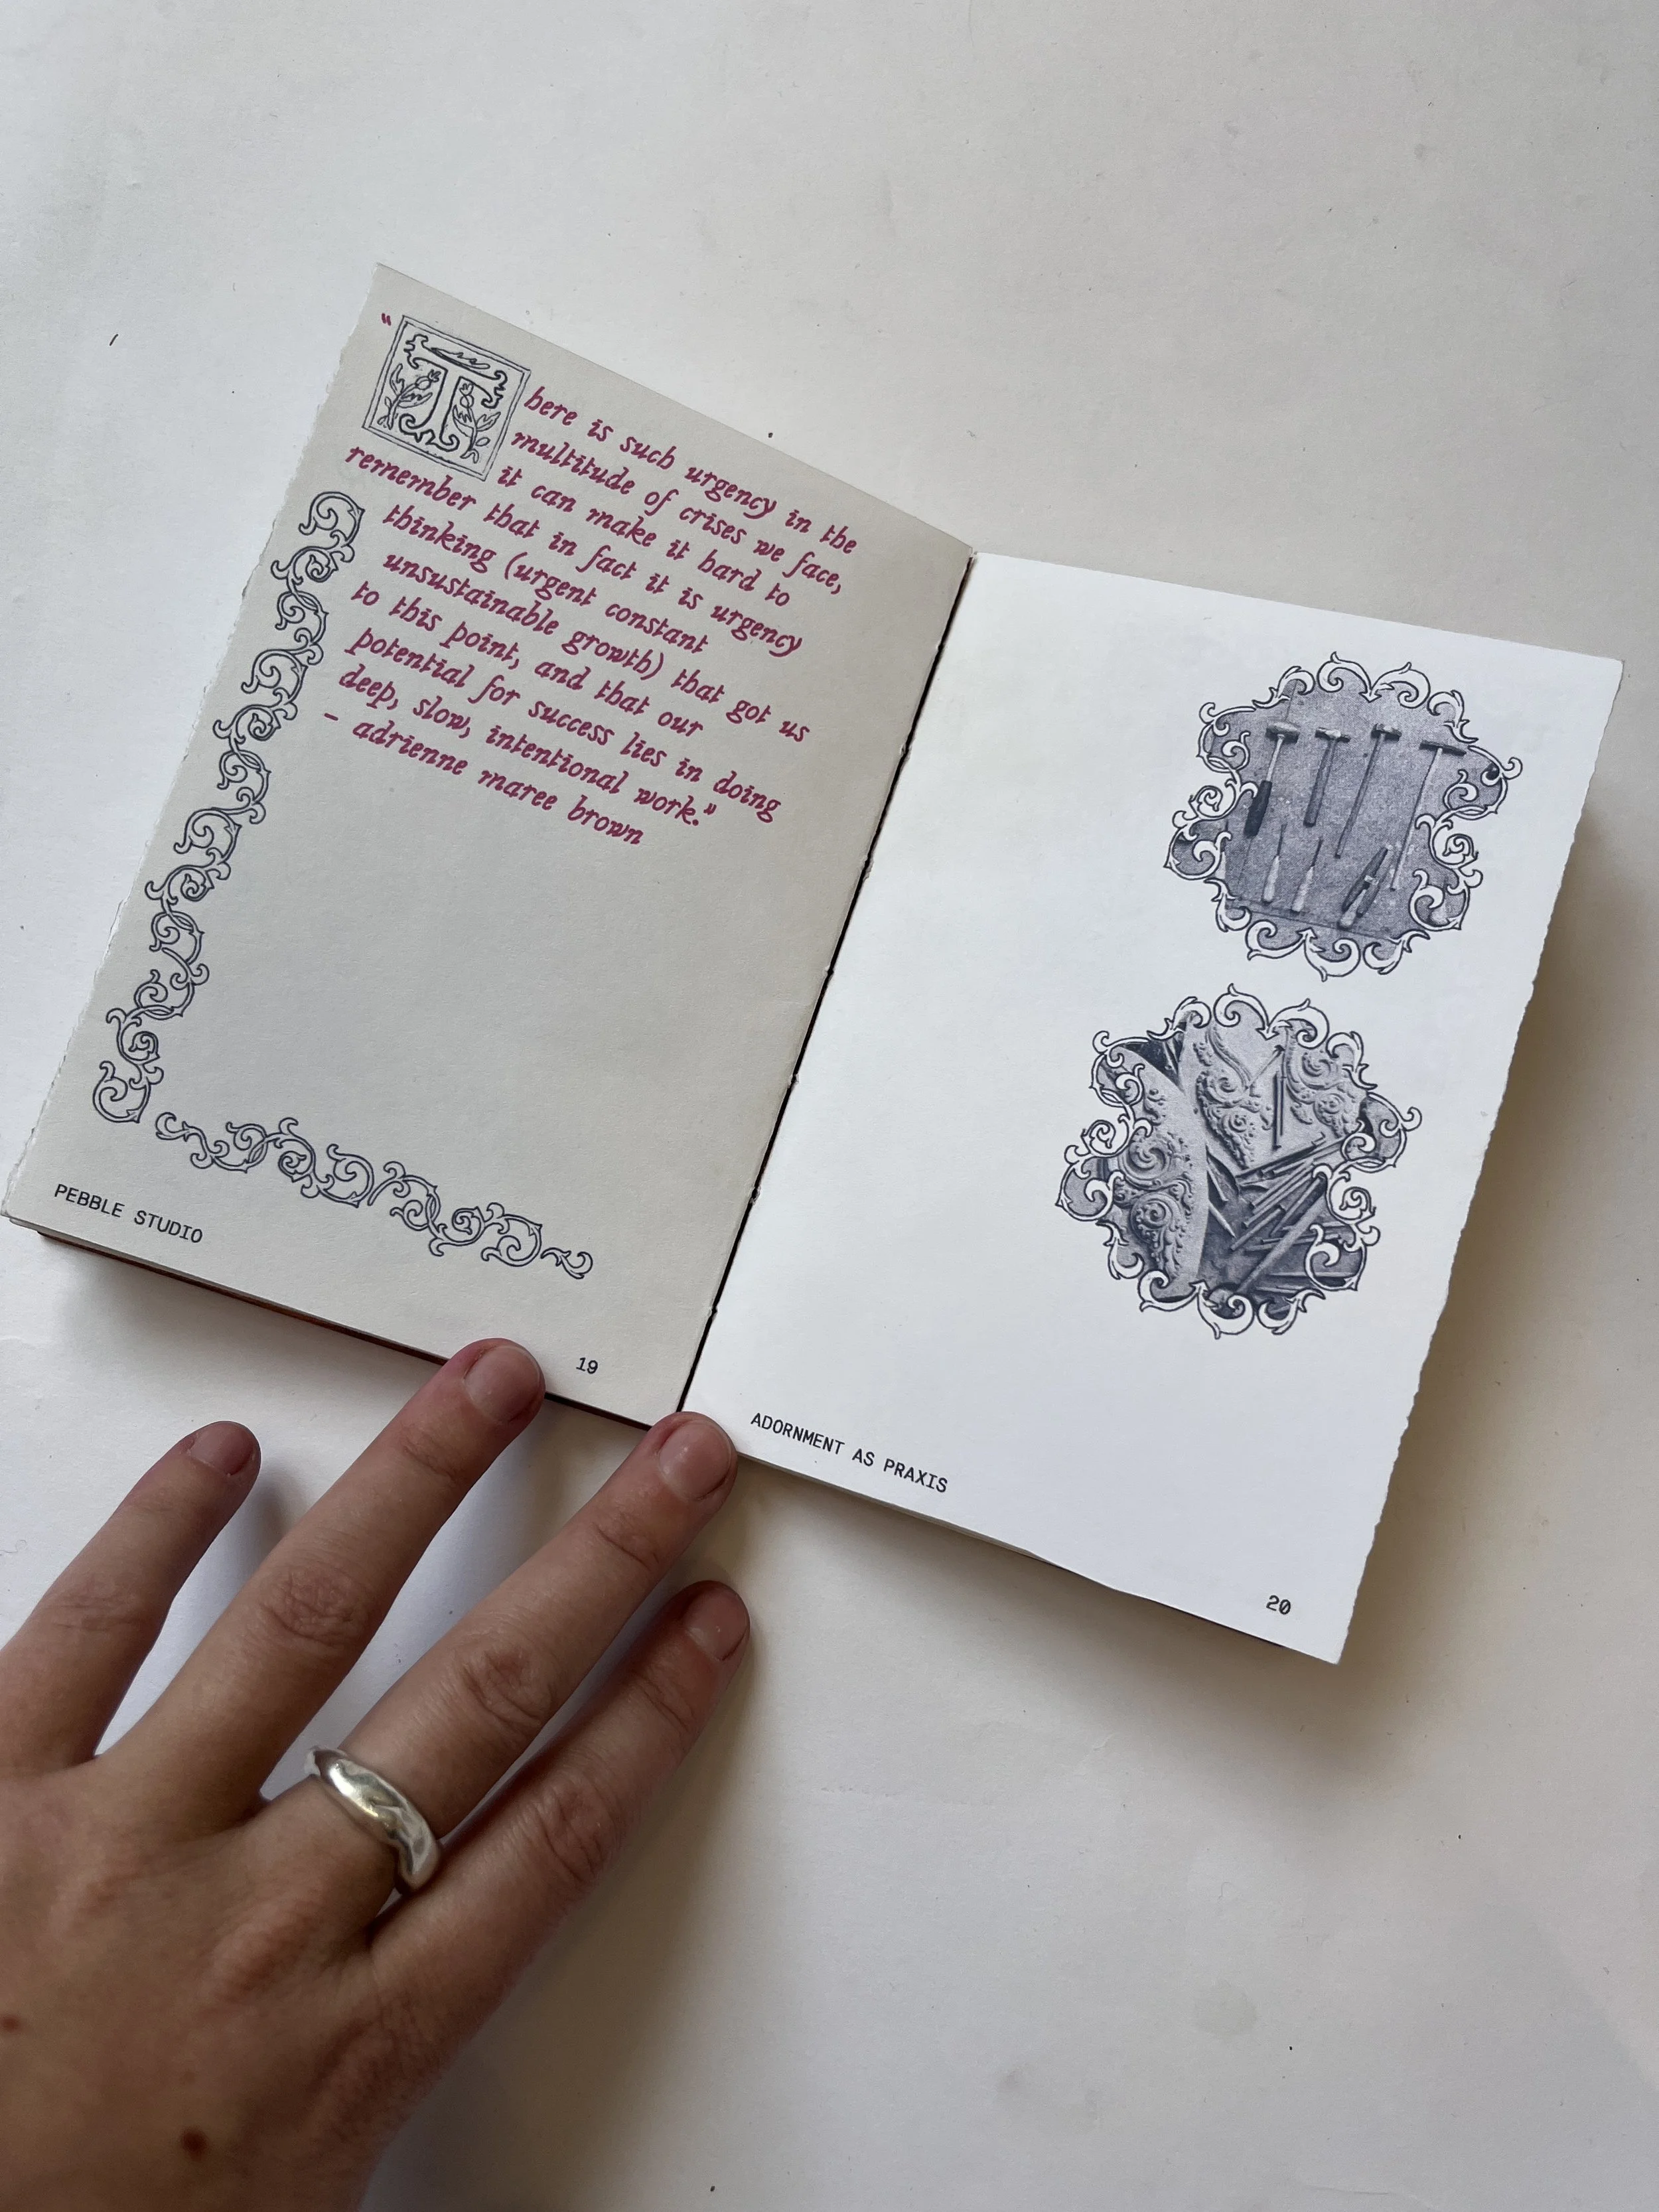 "There is such urgency in the
multitude of crises we face,
it can make it hard to
remember that in fact it is urgency
thinking (urgent constant
unsustainable growth) that got us
to this point, and that our
potential for success lies in doing
deep, slow, intentional work."
- adrienne maree brown
PEBBLE STUDIO
19
ADORNMENT AS PRAXIS
20